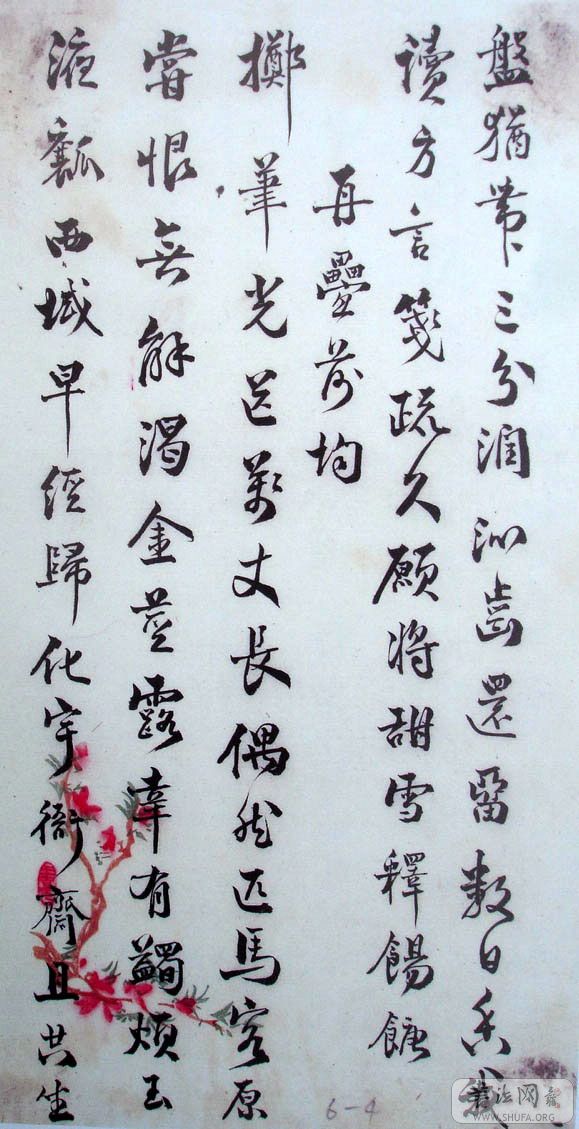 盤猶帶三分潤沁齒還留數日香
讀方言箋疏久願將甜雪釋餳餹
再疊前均
擲筆光芒萬丈長偶然匹馬客原
嘗恨無解渴金莖露幸有蠲煩玉
液瓤西域早經歸化宇衙齋且共坐
6-4
书法网
WWW.SHUFA.ORG